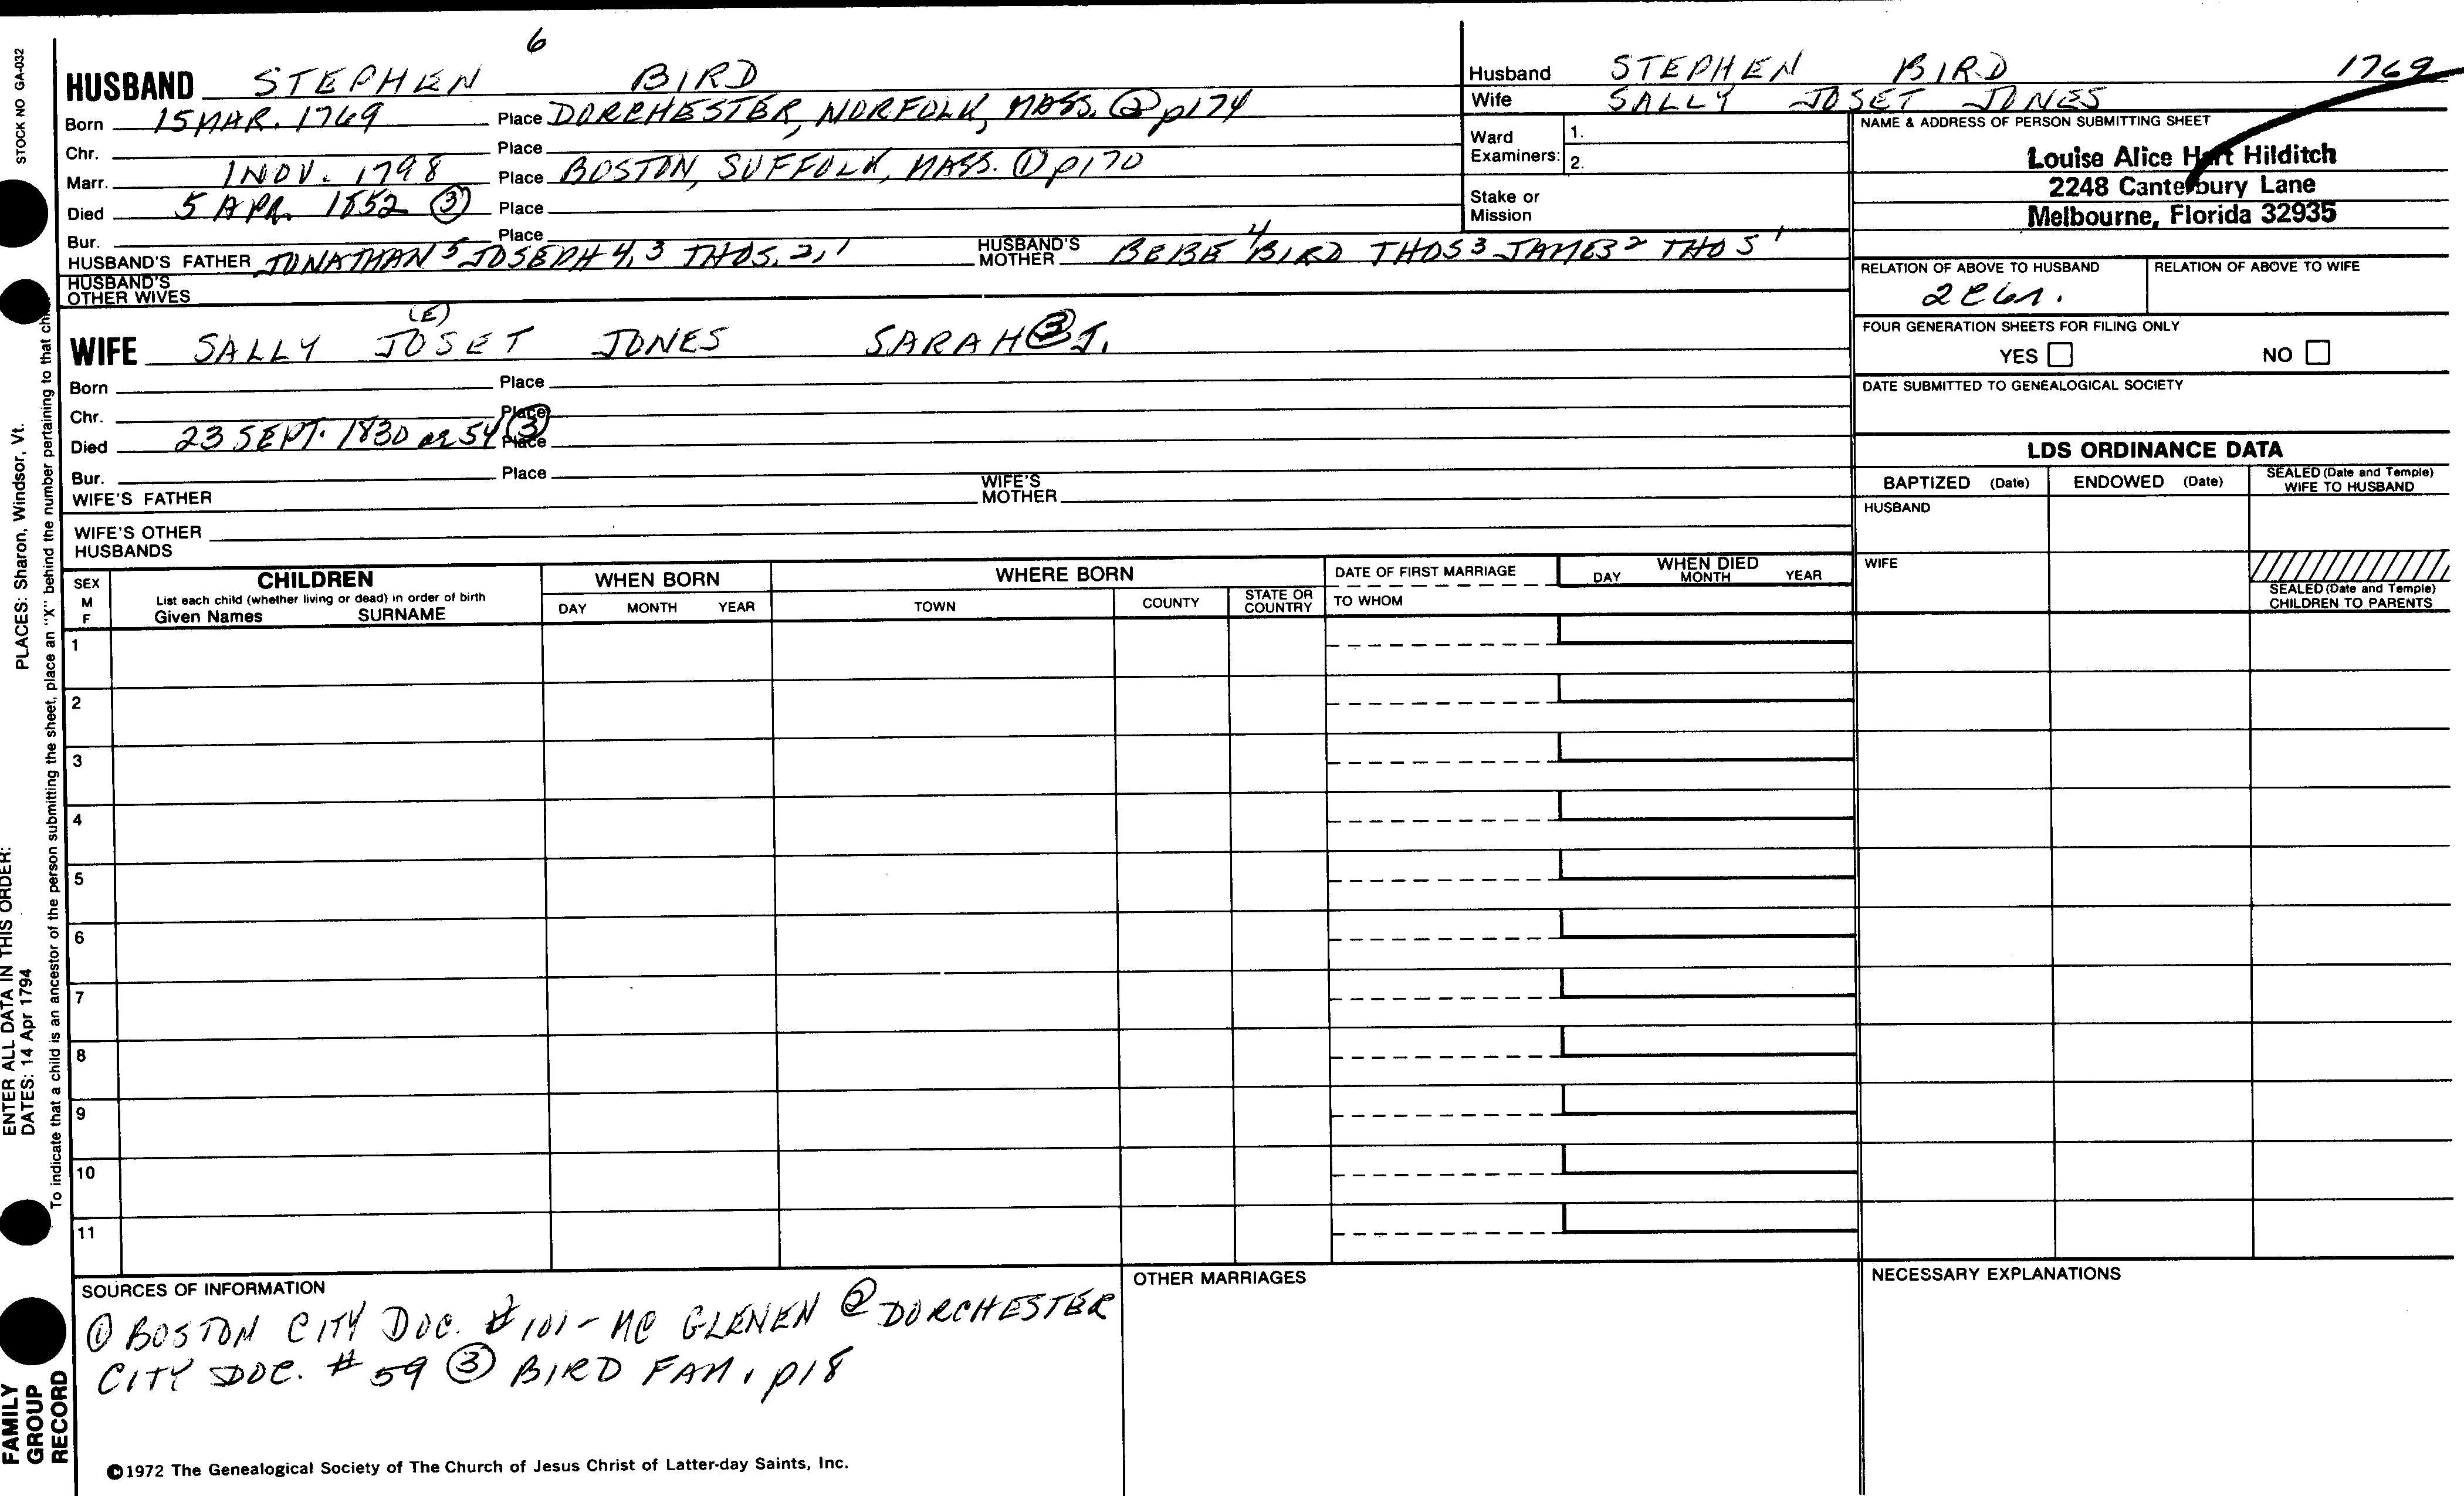 6
HUSBAND STEPHEN BIRD
Born 15 MAR. 1769 Place DORCHESTER, NORFOLK, MASS. ② p174
Chr. Place
Marr. 1 NOV. 1798 Place BOSTON, SUFFOLK, MASS. ① p170
Died 5 APR. 1852 ③ Place
Bur. Place
HUSBAND'S FATHER JONATHAN 5 JOSEPH 4,3 THOS. 2,1 HUSBAND'S MOTHER BEBE 4 BIRD THOS 3 JAMES 2 THOS 1
HUSBAND'S OTHER WIVES
(E)
WIFE SALLY JOSET JONES SARAH ③ J.
Born Place
Chr. Place
Died 23 SEPT. 1830 or 54 ③ Place
Bur. Place
WIFE'S FATHER WIFE'S MOTHER
WIFE'S OTHER HUSBANDS
Husband STEPHEN BIRD 1769
Wife SALLY JOSET JONES
Ward Examiners: 1.
2.
Stake or Mission
NAME & ADDRESS OF PERSON SUBMITTING SHEET
Louise Alice Hart Hilditch
2248 Canterbury Lane
Melbourne, Florida 32935
RELATION OF ABOVE TO HUSBAND RELATION OF ABOVE TO WIFE
FOUR GENERATION SHEETS FOR FILING ONLY
YES NO
DATE SUBMITTED TO GENEALOGICAL SOCIETY
LDS ORDINANCE DATA
BAPTIZED (Date) ENDOWED (Date) SEALED (Date and Temple) WIFE TO HUSBAND
HUSBAND
WIFE
SEALED (Date and Temple) CHILDREN TO PARENTS
SEX M F
CHILDREN
List each child (whether living or dead) in order of birth
Given Names SURNAME
WHEN BORN
DAY MONTH YEAR
WHERE BORN
TOWN COUNTY STATE OR COUNTRY
DATE OF FIRST MARRIAGE
TO WHOM
WHEN DIED
DAY MONTH YEAR
1
2
3
4
5
6
7
8
9
10
11
SOURCES OF INFORMATION
① BOSTON CITY DOC. #101 - MC GLENEN ② DORCHESTER
CITY DOC. # 59 ③ BIRD FAM. p18
OTHER MARRIAGES
NECESSARY EXPLANATIONS
©1972 The Genealogical Society of The Church of Jesus Christ of Latter-day Saints, Inc.
STOCK NO. GA-032
PLACES: Sharon, Windsor, Vt.
ENTER ALL DATA IN THIS ORDER:
DATES: 14 Apr 1794
To indicate that a child is an ancestor of the person submitting the sheet, place an "X" behind the number pertaining to that
FAMILY
GROUP
RECORD